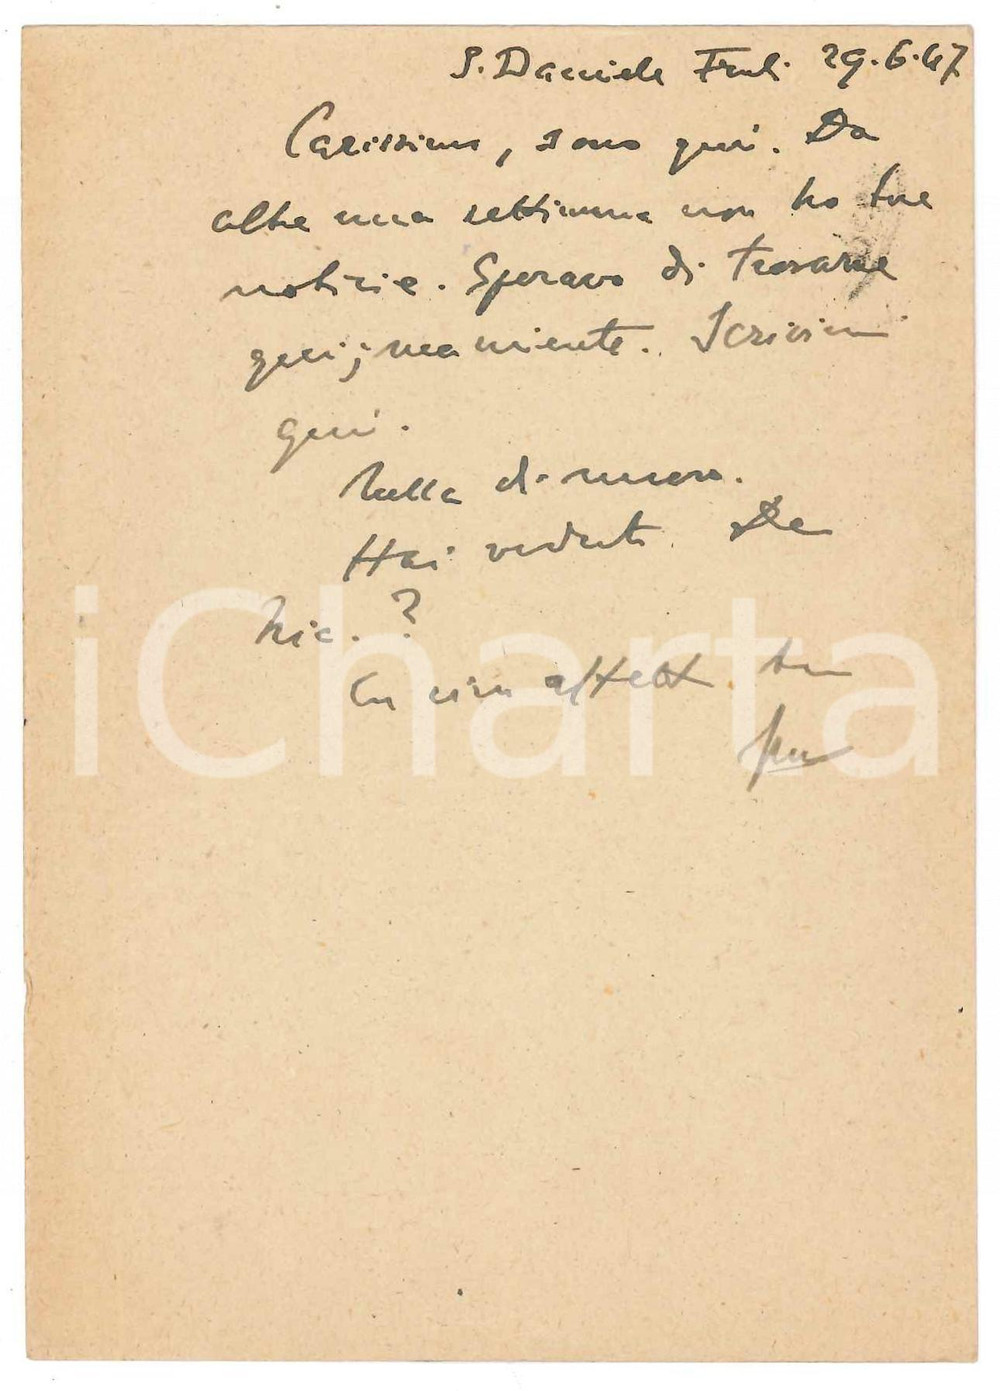 S. Daniele Friuli 29.6.47
Carissimo, sono qui. Da
oltre una settimana non ho tue
notizie. Speravo di trovarne
qui; ma niente. Scrivimi
qui.
Nulla di nuovo.
Hai veduto De
Nic. ?
Con vivo affetto tuo
iCharta